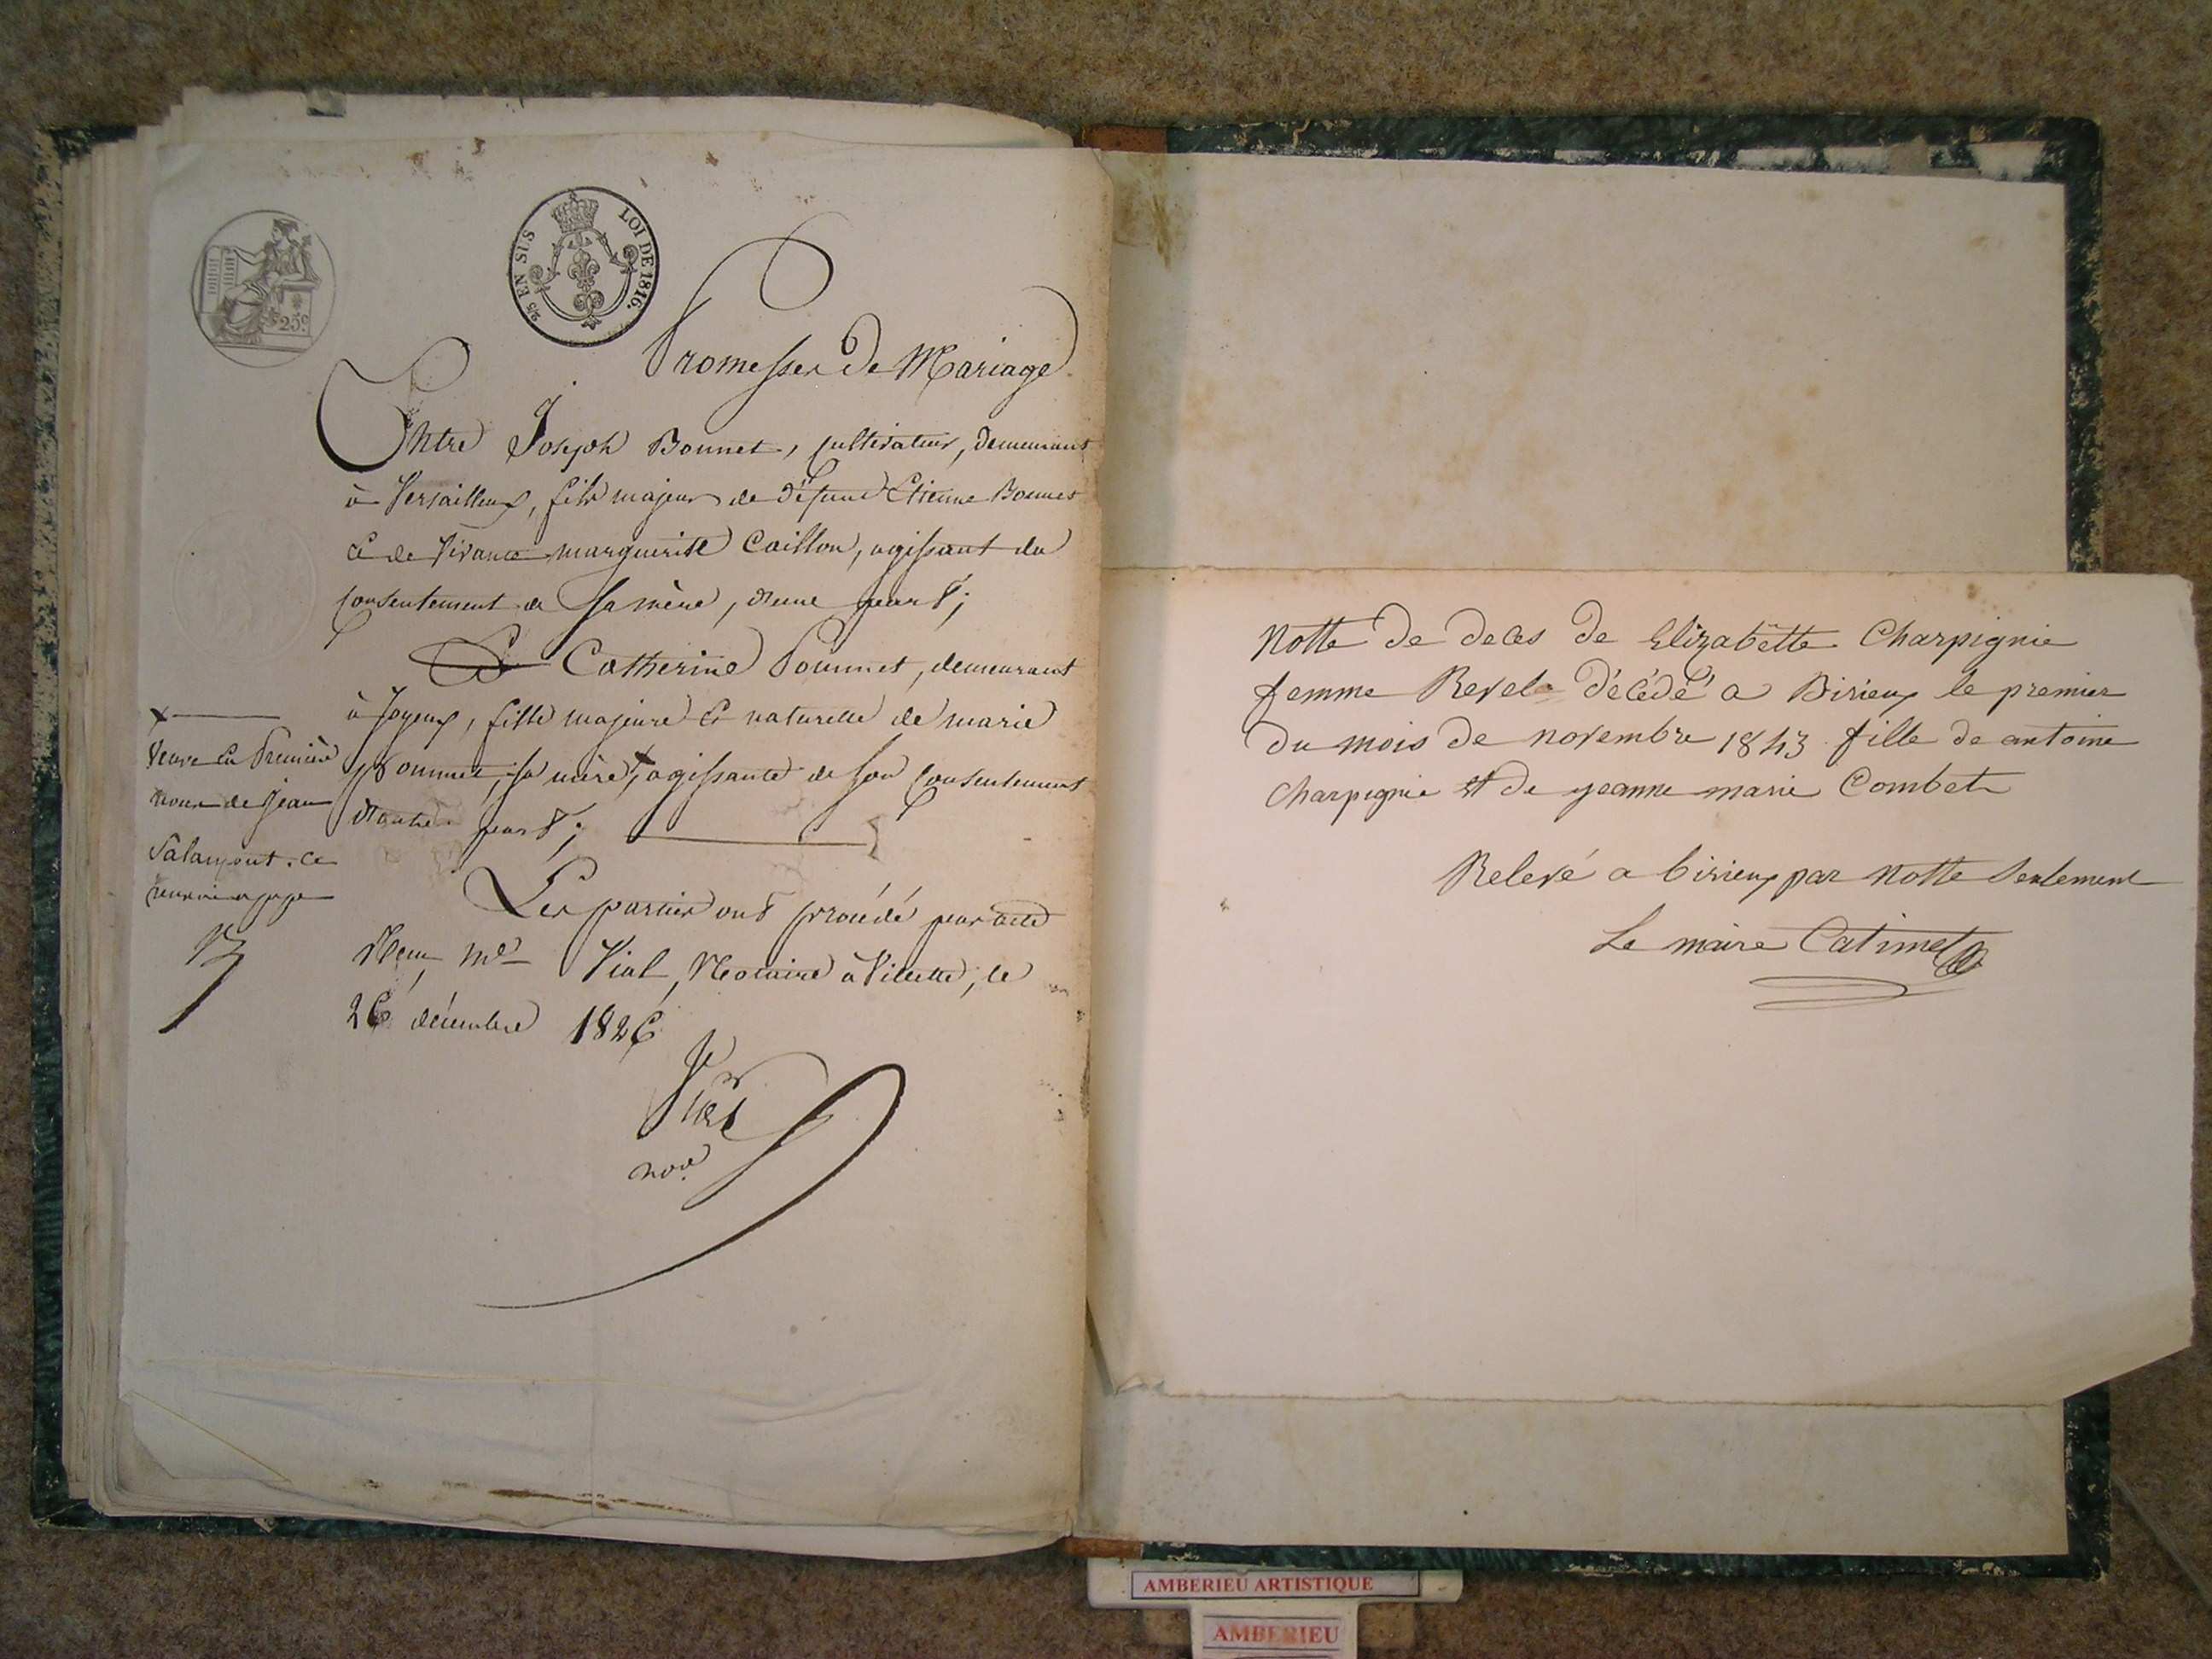 25 EN SUS
LOI DE 1816.
25c
Promesses de Mariage
Entre Joseph Bonnet, cultivateur, demeurant
à Versailleux, fils majeur de défunt Etienne Bonnet
et de vivante marguerite Caillon, agissant du
consentement de sa mère, d'une part;
Et Catherine Pommet, demeurant
à Joyeux, fille majeure et naturelle de marie
Pommet, sa mère, x agissante de son consentement
d'autre part;
x
veuve en Première
noces de Jean
Salampont. ce
renvoi
Les parties ont procédé par acte
Reçu Me Vial, Notaire à Villette, le
26 décembre 1826
Vial
nore
Notte de deces de Elizabëtte Charpignie
femme Revel décédé a Birieux le premier
du mois de novembre 1843 fille de antoine
Charpignie et de jeanne marie Combet
Relevé a birieux par notte seulement
Le maire Catimel
AMBERIEU ARTISTIQUE
AMBERIEU